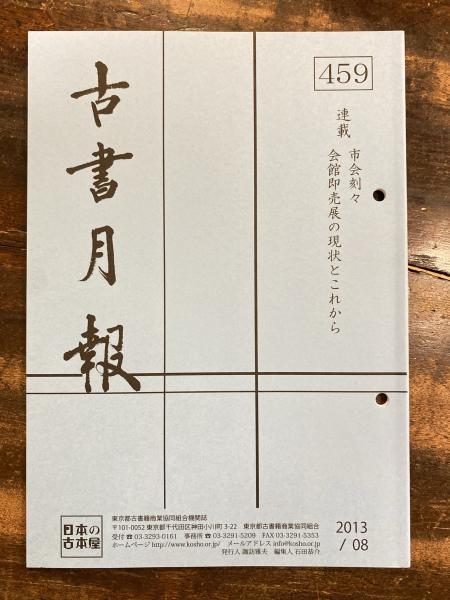 459
連載 市会刻々
会館即売展の現状とこれから
古書月報
日本の
古本屋
東京都古書籍商業協同組合機関誌
〒101-0052 東京都千代田区神田小川町 3-22 東京都古書籍商業協同組合
受付 ☎ 03-3293-0161 事務所 ☎ 03-3291-5209 FAX 03-3291-5353
ホームページ http://www.kosho.or.jp/ メールアドレス info@kosho.or.jp
発行人 諏訪雅夫 編集人 石田恭介
2013
/ 08